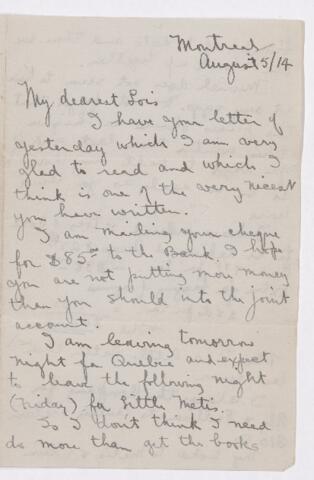 Montreal
August 5/14
My dearest Lois
I have your letter of
yesterday which I am very
glad to read and which I
think is one of the very nicest
you have written.
I am mailing your cheque
for $85.00 to the Bank. I hope
you are not putting more money
than you should into the joint
account.
I am leaving tomorrow
night for Quebec and expect
to leave the following night
(Friday) for Little Metis.
So I don't think I need
do more than get the books